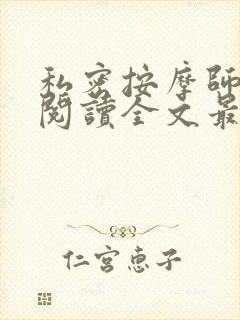 私密按摩師
閱讀全文最
仁宮惠子